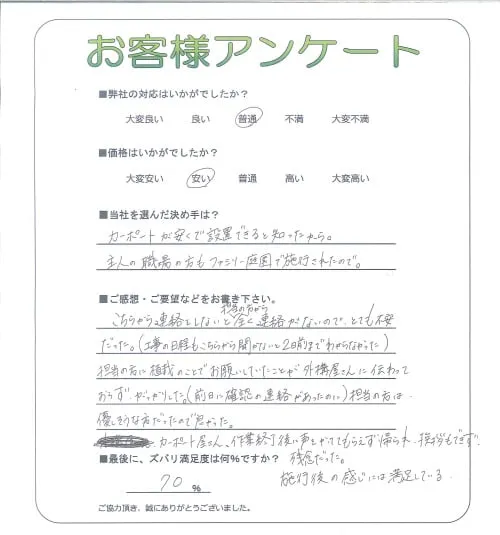 お客様アンケート
■弊社の対応はいかがでしたか？
大変良い 良い 普通 不満 大変不満
■価格はいかがでしたか？
大変安い 安い 普通 高い 大変高い
■当社を選んだ決め手は？
カーポートが安くで設置できると知ったから。
主人の職場の方もファミリー庭園で施行されたので。
■ご感想・ご要望などをお書き下さい。
担当の方から
こちらから連絡をしないと全く連絡がないので、とても不安
だった。（工事の日程もこちらから聞かないと2日前までわからなかった）
担当の方に植栽のことでお願いしていたことが外構屋さんに伝わって
おらず、がっかりした。（前日に確認の連絡があったのに）担当の方は
優しそうな方だったので
カーポート屋さん、作業終了後い声をかけてもらえず帰られ、挨拶もできず
残念だった。
■最後に、ズバリ満足度は何%ですか？
施行後の感じには満足している。
70 %
ご協力頂き、誠にありがとうございました。